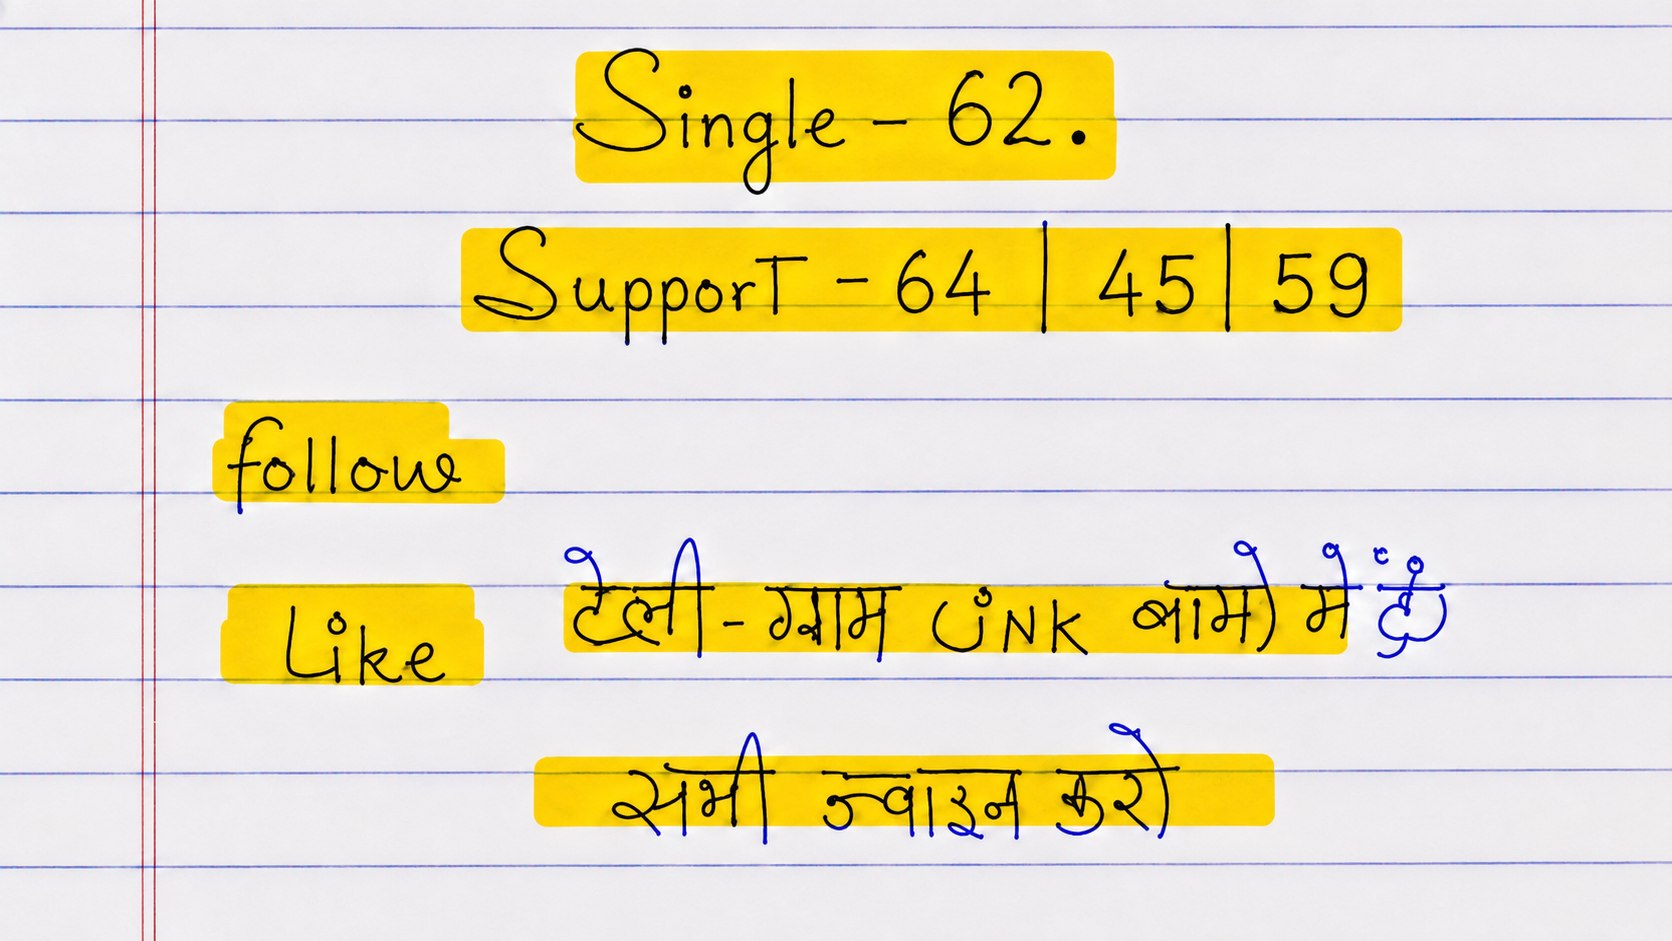 Single - 62.
SupporT - 64 | 45 | 59
follow
Like
टेली - ग्राम LiNK बामो में
सभी ज्वाइन करो